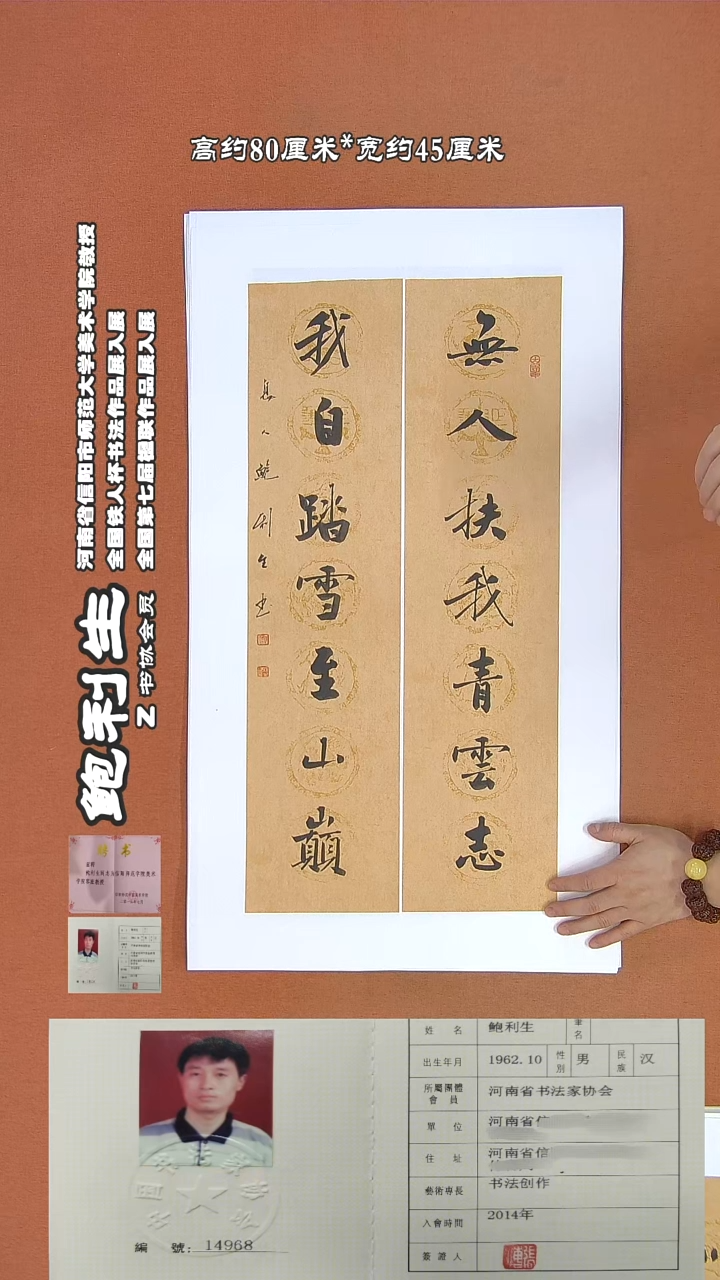 高约80厘米*宽约45厘米
無人扶我青雲志
我自踏雪至山巔
鮑利生書
河南省信阳市师范大学美术学院教授
全国铁人杯书法作品展入展
全国第七届楹联作品展入展
鲍利生
Z 书协会员
聘书
姓名 鲍利生 筆名
出生年月 1962.10 性別 男 民族 汉
所屬團體會員 河南省书法家协会
單位 河南省信
住址 河南省信
藝術專長 书法创作
入會時間 2014年
簽證人
編號：14968